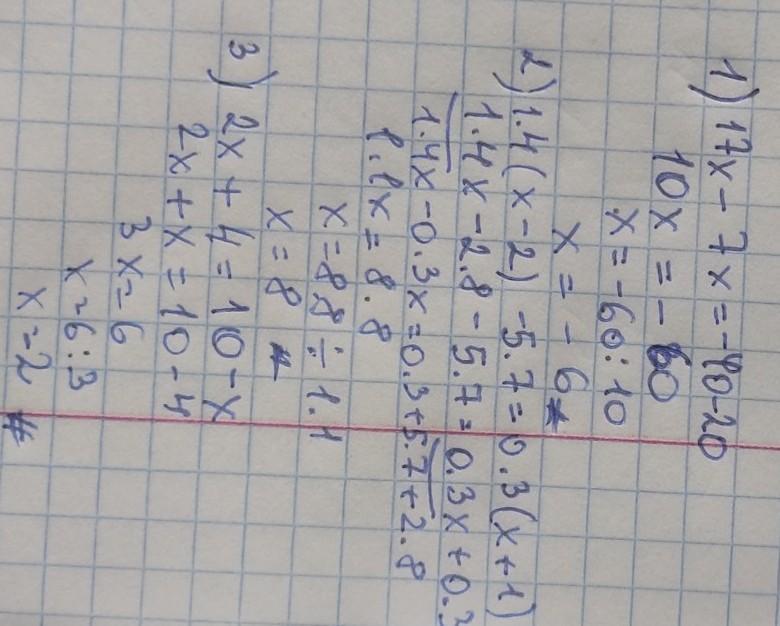 1) 17x - 7x = -40-20
10x = - 60
x = -60:10
x = - 6
2) 1.4(x-2) -5.7 = 0.3(x+1)
1.4x-2.8-5.7=0.3x+0.3
1.4x-0.3x=0.3+5.7+2.8
1.1x = 8.8
x=8.8÷1.1
x=8
3) 2x + 4 = 10 - x
2x + x = 10 - 4
3x=6
x=6:3
x=2